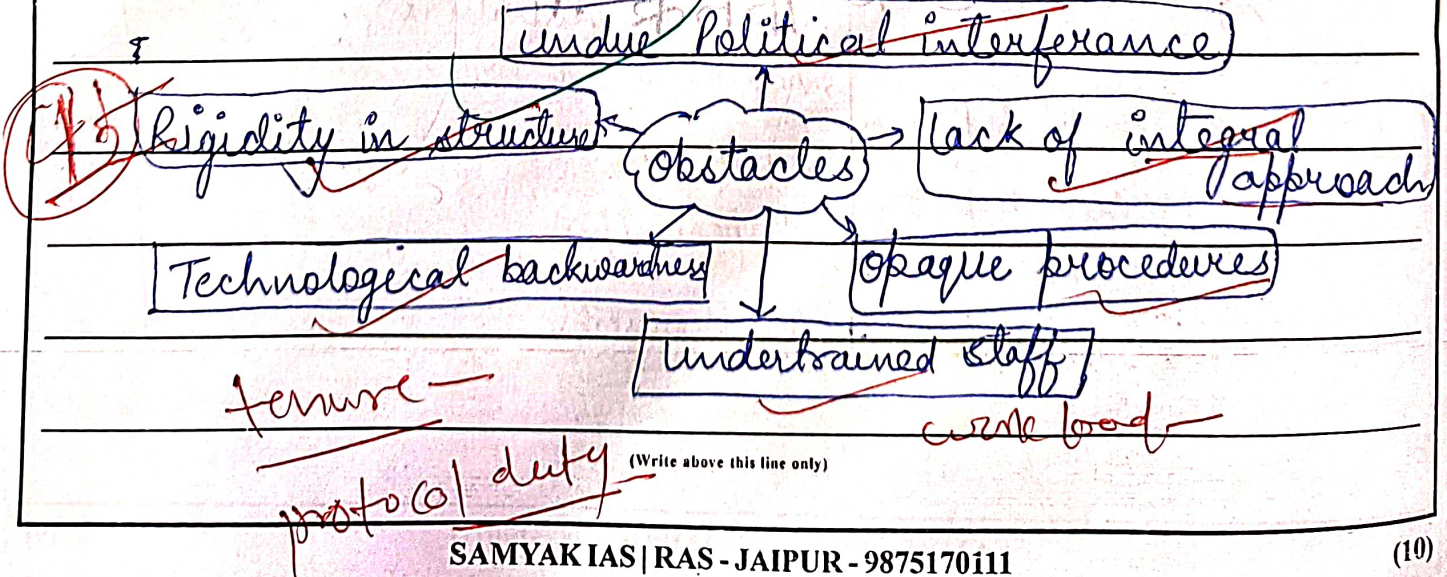 undue Political interferance
15
Rigidity in structure
obstacles
lack of integral
approach
Technological backwardness
opaque procedures
undertrained staff
tenure
work load
protocol duty
(Write above this line only)
SAMYAK IAS | RAS - JAIPUR - 9875170111
(10)